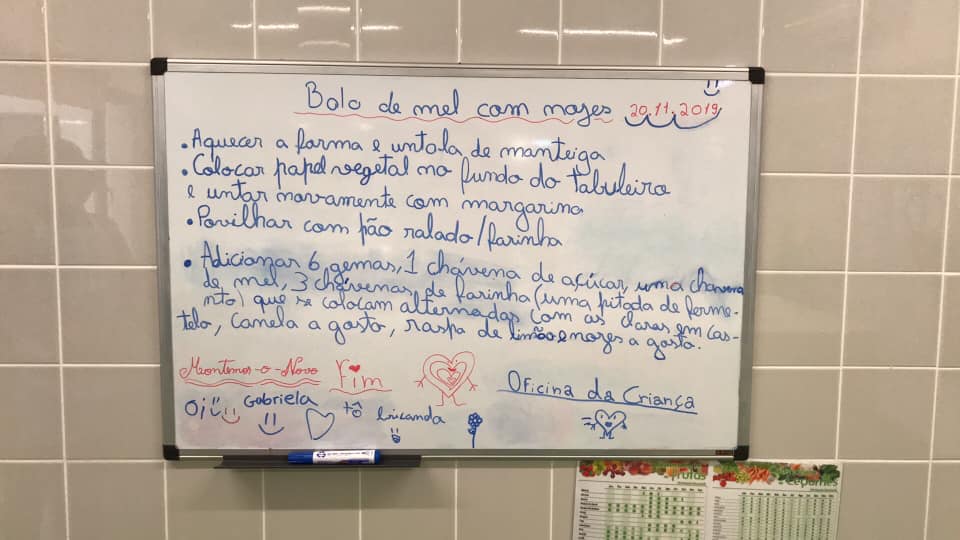 Bolo de mel com nozes 20.11.2019
• Aquecer a forma e untá-la de manteiga
• Colocar papel vegetal no fundo do tabuleiro
e untar novamente com margarina
• Povilhar com pão ralado/farinha
• Adicionar 6 gemas, 1 chávena de açúcar, uma chávena
de mel, 3 chávenas de farinha (uma pitada de ferme-
nto) que se colocam alternadas com as claras em cas-
telo, canela a gosto, raspa de limão e nozes a gosto.
Montemor-o-Novo Fim
Oficina da Criança
Oi Gabriela tô brincando
Frutas